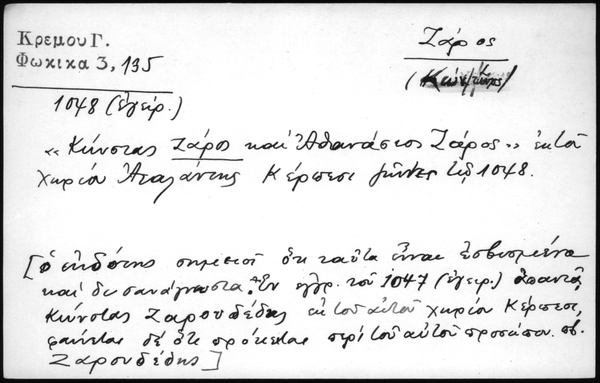 Κρεμου Γ.
Φωκικα 3, 135
Ζάρος
1048 (ἐγειρ.)
«Κώνστας Ζάρος καὶ Ἀθανάσιος Ζάρος» ἐκ τοῦ
χωρίου Ἀταλάντης Κέρπεσι 1048.
[ὁ ἐκδότης σημειοῖ ὅτι ταῦτα εἶναι ἐσβυσμένα
καὶ δυσανάγνωστα. Ἐν ἐγγρ. τοῦ 1047 (ἐγειρ.) ἀπαντᾷ
Κώνστας Ζαρουδέδης ἐκ τοῦ αὐτοῦ χωρίου Κέρπεσι,
φαίνεται δὲ ὅτι πρόκειται περὶ τοῦ αὐτοῦ προσώπου. πβ.
Ζαρουδέδης]